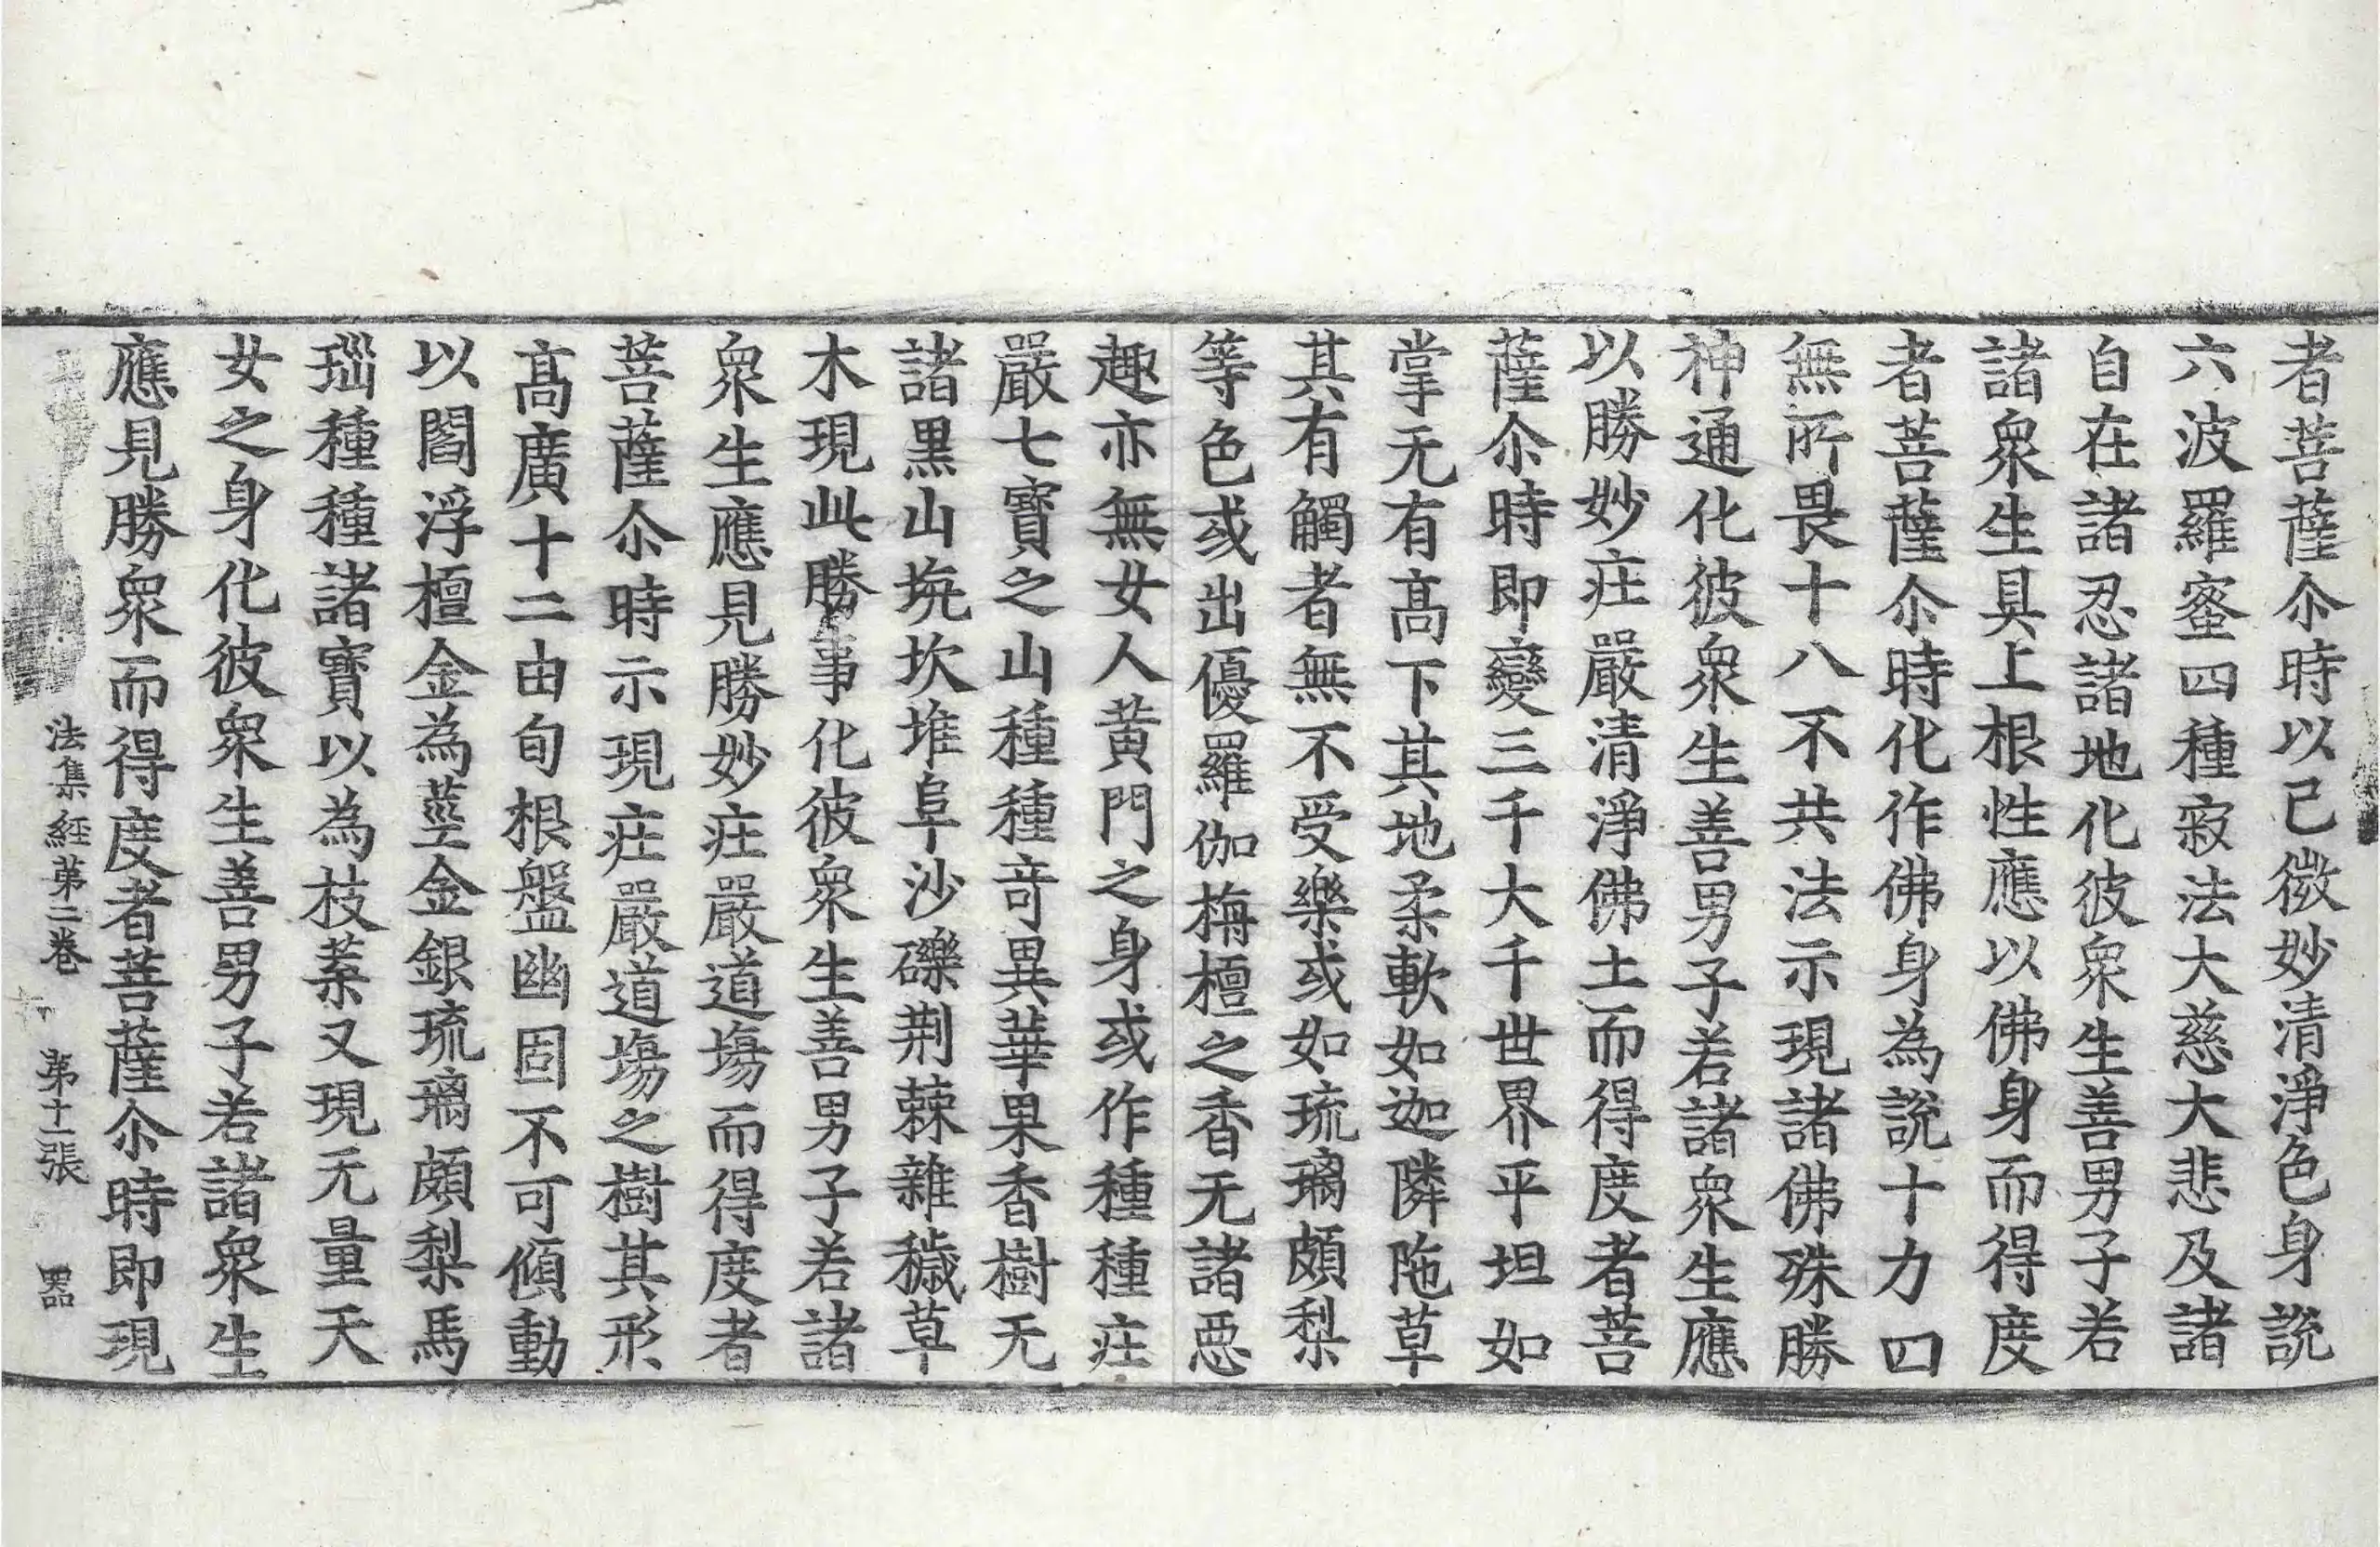 者菩薩尒時以己微妙清淨色身說
六波羅蜜四種寂法大慈大悲及諸
自在諸忍諸地化彼衆生善男子若
諸衆生具上根性應以佛身而得度
者菩薩尒時化作佛身為說十力四
無所畏十八不共法示現諸佛殊勝
神通化彼衆生善男子若諸衆生應
以勝妙庄嚴清淨佛土而得度者菩
薩尒時即變三千大千世界平坦如
掌无有髙下其地柔軟如迦隣陁草
其有觸者無不受樂或如琉璃頗梨
等色或出優羅伽栴檀之香无諸惡
趣亦無女人黃門之身或作種種庄
嚴七寶之山種種奇異華果香樹无
諸黒山埦坎堆阜沙礫荆蕀雜穢草
木現此勝事化彼衆生善男子若諸
衆生應見勝妙庄嚴道塲而得度者
菩薩尒時示現庄嚴道塲之樹其形
髙廣十二由旬根盤幽固不可傾動
以閻浮檀金為莖金銀琉璃頗梨馬
瑙種種諸寶以為枝葉又現无量天
女之身化彼衆生善男子若諸衆生
應見勝衆而得度者菩薩尒時即現
法集經第二卷 第十一張 器